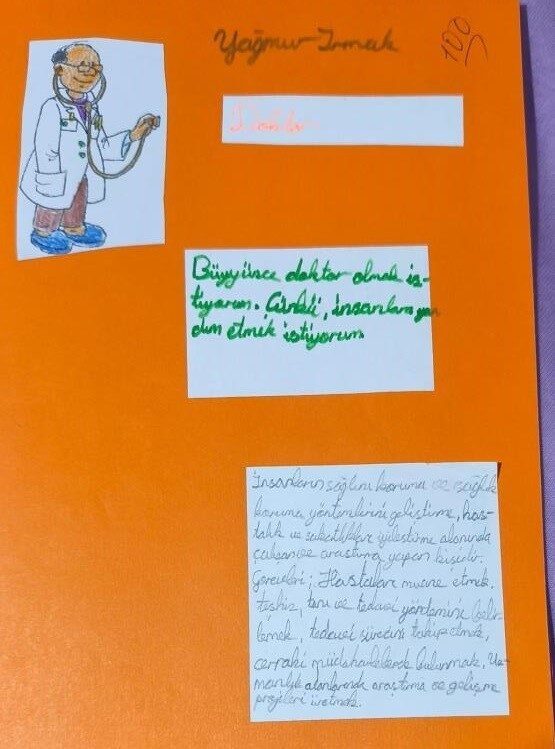 Yağmur Irmak
100
Büyyünce doktor olmak is-
tiyorum. Çünkü, insanlara yar
dım etmek istiyorum
İnsanların sağlını koruma ve sağlık
koruma yöntemlerini geliştirme, has-
talık ve sakatlıkları iyileştirme alanında
çalışan ve araştırma yapan kişidir.
Görevleri; Hastaları muane etmek,
teşhiz, tanı ve tedavi yöndemini belir-
lemek, tedavi sürecini takip etmek,
cerrahi müdahalelerde bulunmak. Uz-
manlık alanlarında araştırma ve gelişme
projeleri üretmek.